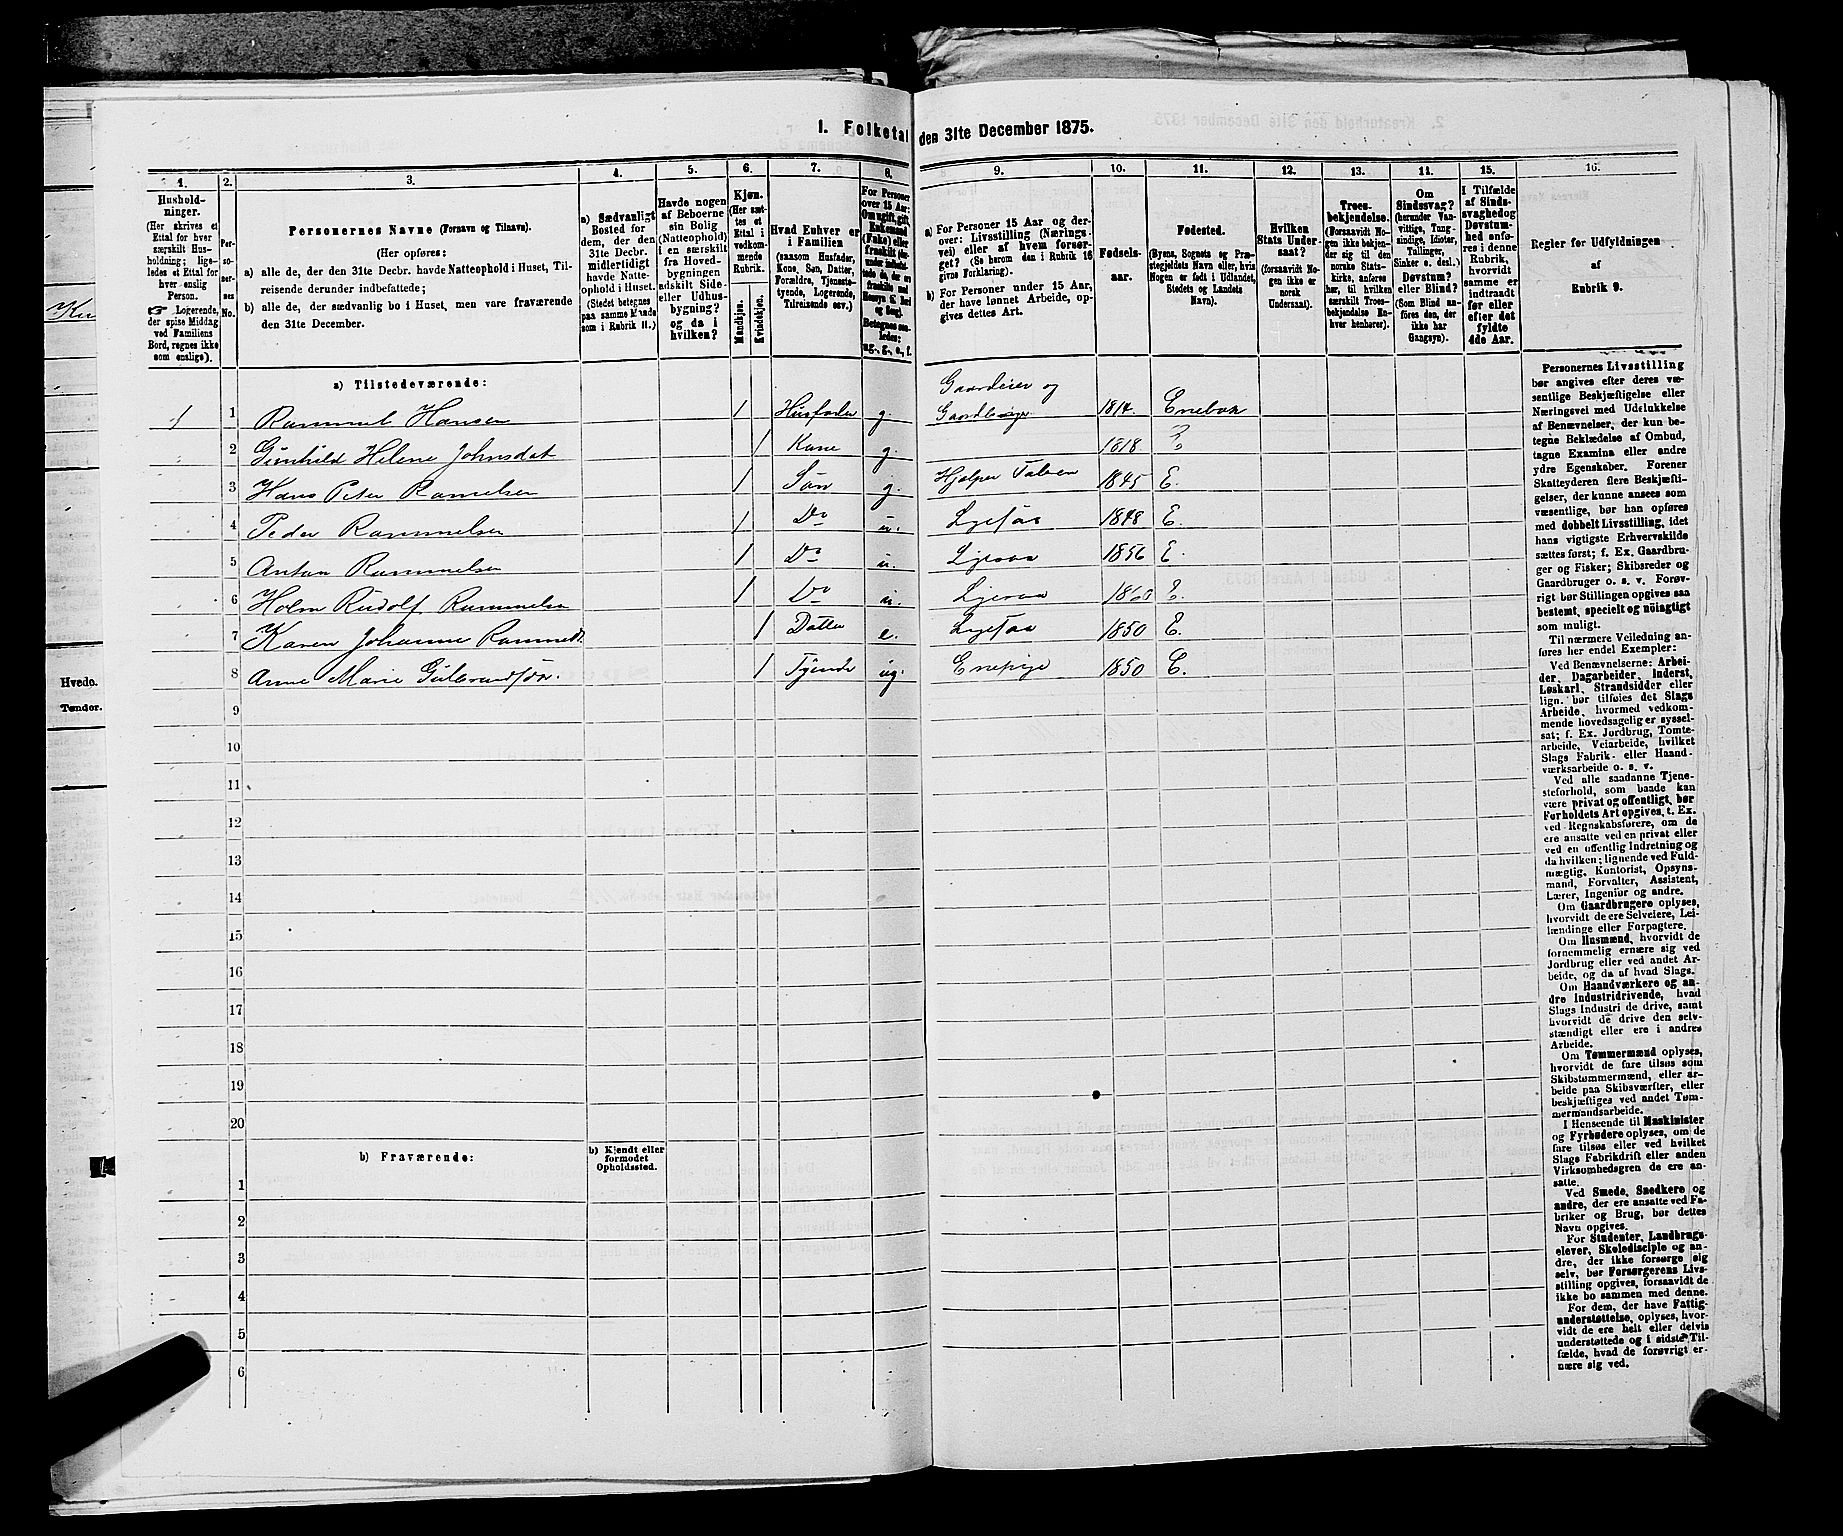 1. Folketal den 31te December 1875.
1.
Hushold-
ninger.
(Her skrives et
Ettal for hver
særskilt Hus-
holdning; lige-
ledes et Ettal for
hver enslig
Person.
☞ Logerende,
der spise Middag
ved Familiens
Bord, regnes ikke
som enslige).
2.
Per-
so-
ner-
nes
No.
3.
Personernes Navne (Fornavn og Tilnavn).
(Her opføres:
a) alle de, der den 31te Decbr. havde Natteophold i Huset, Til-
reisende derunder indbefattede;
b) alle de, der sædvanlig bo i Huset, men vare fraværende
den 31te December.
4.
a) Sædvanligt
Bosted for
dem, der den
31te Decbr.
midlertidigt
havde Natte-
ophold i Huset.
(Stedet betegnes
paa samme Maade
som i Rubrik 11.)
5.
Havde nogen
af Beboerne
sin Bolig
(Natteophold)
i en særskilt
fra Hoved-
bygningen
adskilt Side-
eller Udhus-
bygning?
og da i
hvilken?
6.
Kjøn.
(Her sæt-
tes et
Ettal i
vedkom-
mende
Rubrik.
Mandkjøn.
Kvindekjøn.
7.
Hvad Enhver er
i Familien
(saasom Husfader,
Kone, Søn, Datter,
Forældre, Tjeneste-
tyende, Logerende,
Tilreisende osv.)
8.
For Personer
over 15 Aar:
Om ugift, gift,
Enkemand
(Enke) eller
fraskilt
Betegnes saa-
ledes:
ug., g., e., f.
9.
a) For Personer 15 Aar og der-
over: Livsstilling (Nærings-
vei) eller af hvem forsør-
get? (Se herom den i Rubrik 16
givne Forklaring).
b) For Personer under 15 Aar,
der have lønnet Arbeide, op-
gives dettes Art.
10.
Fødsels-
aar.
11.
Fødested.
(Byens, Sognets og Præ-
stegjeldets Navn eller, hvis
Nogen er født i Udlandet,
Stedets og Landets
Navn).
12.
Hvilken
Stats Under-
saat?
(forsaavidt No-
gen ikke er
norsk
Undersaat.)
13.
Troes-
bekjendelse.
(Forsaavidt No-
gen ikke bekjen-
der sig til den
norske Stats-
kirke, anføres
her, til hvilken
særskilt Troes-
bekjendelse En-
hver henhører).
11.
Om
Sindssvag?
(herunder Van-
vittige, Tung-
sindige, Idioter,
Tullinger,
Sinker o. desl.)
Døvstum?
eller Blind?
(Som Blind an-
føres den, der
ikke har
Gangsyn).
15.
I Tilfælde
af Sinds-
svaghed og
Døvstum-
hed anfø-
res i denne
Rubrik,
hvorvidt
samme er
indtraadt
før eller
efter det
fyldte
4de Aar.
16.
Regler for Udfyldningen
af
Rubrik 9.
a) Tilstedeværende:
1 1 Rammel Hansen 1 Husfader g. Gaardeier og Gaardbruger 1814. Enebak
2 Gunhild Helene Johnsdat 1 Kone g. 1818.
3 Hans Peter Ramelsen 1 Søn g. Hjælper Faderen 1845 E.
4 Peder Rammelsen 1 Do u. Ligesaa 1848 E.
5 Anton Rammelsen 1 Do u. Ligesaa 1856 E.
6 Holm Rudolf Rammelsn 1 Do u. Ligesaa 1860 E.
7 Karen Johanne Rammeld. 1 Datter e. Ligesaa 1850 E.
8 Anne Marie Gulbrandsda. 1 Tyende ug. 1850 E.
9
10
11
12
13
14
15
16
17
18
19
20
b) Fraværende:
b) Kjendt eller
formodet
Opholdssted.
1
2
3
4
5
6
Personernes Livsstilling
bør angives efter deres væ-
sentlige Beskjæftigelse eller
Næringsvei med Udelukkelse
af Benævnelser, der kun be-
tegne Beklædelse af Ombud,
tagne Examina eller andre
ydre Egenskaber. Forener
Skatteyderen flere Beskjæfti-
gelser, der kunne ansees som
væsentlige, bør han opføres
med dobbelt Livsstilling, idet
hans vigtigste Erhvervskilde
sættes først; f. Ex. Gaardbru-
ger og Fisker; Skibsreder og
Gaardbruger o. s. v. Forøv-
rigt bør Stillingen opgives saa
bestemt, specielt og nøiagtigt
som muligt.
Til nærmere Veiledning an-
føres her endel Exempler:
Ved Benævnelserne: Arbei-
der, Dagarbeider, Inderst,
Løskarl, Strandsidder eller
lign. bør tilføies det Slags
Arbeide, hvormed vedkom-
mende hovedsagelig er syssel-
sat; f. Ex. Jordbrug, Tomte-
arbeide, Veiarbeide, hvilket
Slags Fabrik- eller Haand-
værksarbeide o. s. v.
Ved alle saadanne Tjene-
steforhold, som baade kan
være privat og offentligt, bør
Forholdets Art opgives, t. Ex.
ved Regnskabsførere, om de
ere ansatte ved en privat eller
ved en offentlig Indretning og
da hvilken; lignende ved Fuld-
mægtig, Kontorist, Opsyns-
mand, Forvalter, Assistent,
Lærer, Ingeniør og andre.
Om Gaardbrugere oplyses,
hvorvidt de ere Selveiere, Lei-
lændinge eller Forpagtere.
Om Husmænd, hvorvidt de
fornemmelig ernære sig ved
Jordbrug eller ved andet Ar-
beide, og da af hvad Slags.
Om Haandværkere og an-
dre Industridrivende, hvad
Slags Industri de drive, samt
hvorvidt de drive den selv-
stændigt eller ere i andres
Arbeide.
Om Tømmermænd oplyses,
hvorvidt de fare tilsøs som
Skibstømmermænd, eller ar-
beide paa Skibsværfter, eller
beskjæftiges ved andet Tøm-
mermandsarbeide.
I Henseende til Maskinister
og Fyrbødere oplyses, om de
fare tilsøs eller ved hvilket
Slags Fabrikdrift eller anden
Virksomhedsgren de ere an-
satte.
Ved Smede, Snedkere og
andre, der ere ansatte ved Fa-
briker og Brug, bør dettes
Navn opgives.
For Studenter, Landbrugs-
elever, Skoledisciple og an-
dre, der ikke forsørge sig
selv, bør Forsørgerens Livs-
stilling opgives, forsaavidt de
ikke bo sammen med denne.
For dem, der have Fattig-
understøttelse, oplyses, hvor-
vidt de ere helt eller delvis
understøttede og i sidste Til-
fælde, hvad de forøvrigt er-
nære sig ved.
Hvede.
Tønder.